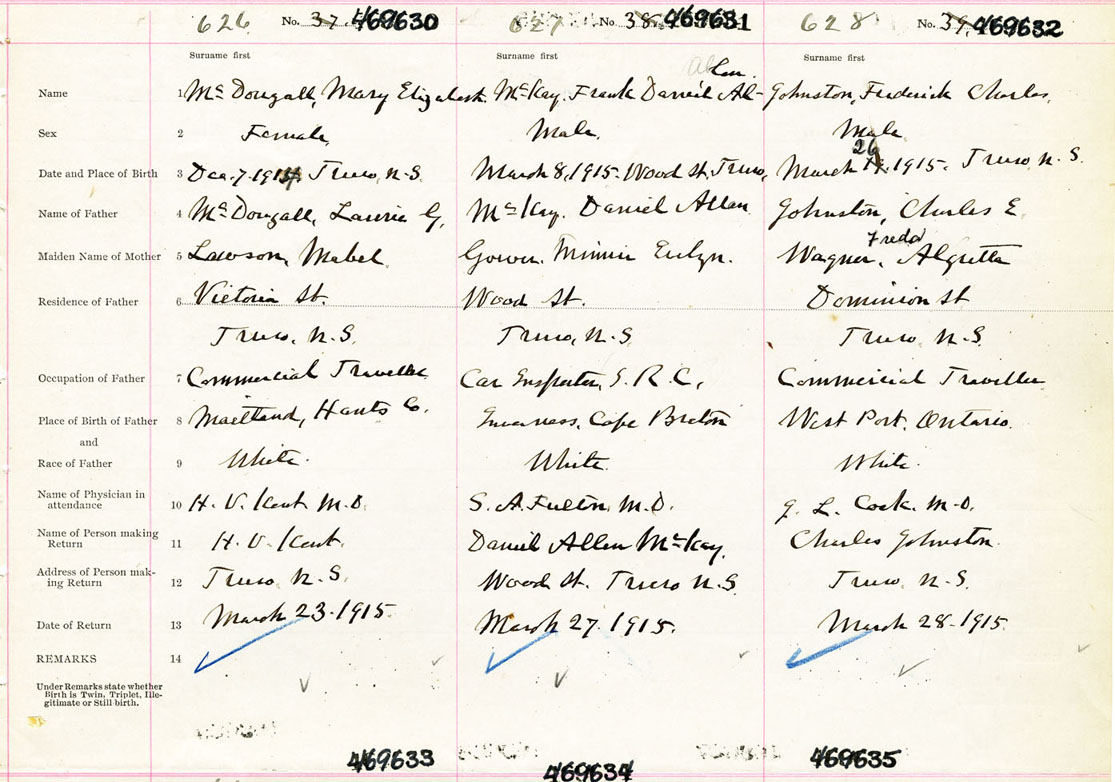 626 No. 37. 469630 627 No. 38. 469631 628 No. 39. 469632
Surname first Surname first Surname first
Allan
Name 1 McDougall, Mary Elizabeth. McKay. Frank Daniel Al- Johnston, Frederick Charles.
Sex 2 Female, Male, Male
26
Date and Place of Birth 3 Dec. 7. 1914, Truro, N.S. March 8, 1915. Wood St, Truro, March 19, 1915. Truro, N.S.
Name of Father 4 McDougall, Laurie G, McKay. Daniel Allan Johnston, Charles E.
Freda
Maiden Name of Mother 5 Lawson, Mabel Gower. Minnie Evelyn. Wagner, Algretta
Residence of Father 6 Victoria St. Wood St. Dominion St
Truro, N.S. Truro, N.S. Truro, N.S.
Occupation of Father 7 Commercial Traveller Car Inspector, I.R.C, Commercial Traveller
Place of Birth of Father 8 Maitland, Hants Co. Inverness, Cape Breton West Port, Ontario.
and
Race of Father 9 White. White White.
Name of Physician in
attendance 10 H. V. Kent M.D. S. A. Fulton, M.D. G. L. Cock. M.D.
Name of Person making
Return 11 H. V. Kent. Daniel Allen McKay. Charles Johnston.
Address of Person mak-
ing Return 12 Truro, N.S. Wood St. Truro N.S. Truro, N.S.
Date of Return 13 March 23. 1915 March 27. 1915. March 28. 1915.
REMARKS 14
Under Remarks state whether
Birth is Twin, Triplet, Ille-
gitimate or Still birth.
469633 469634 469635